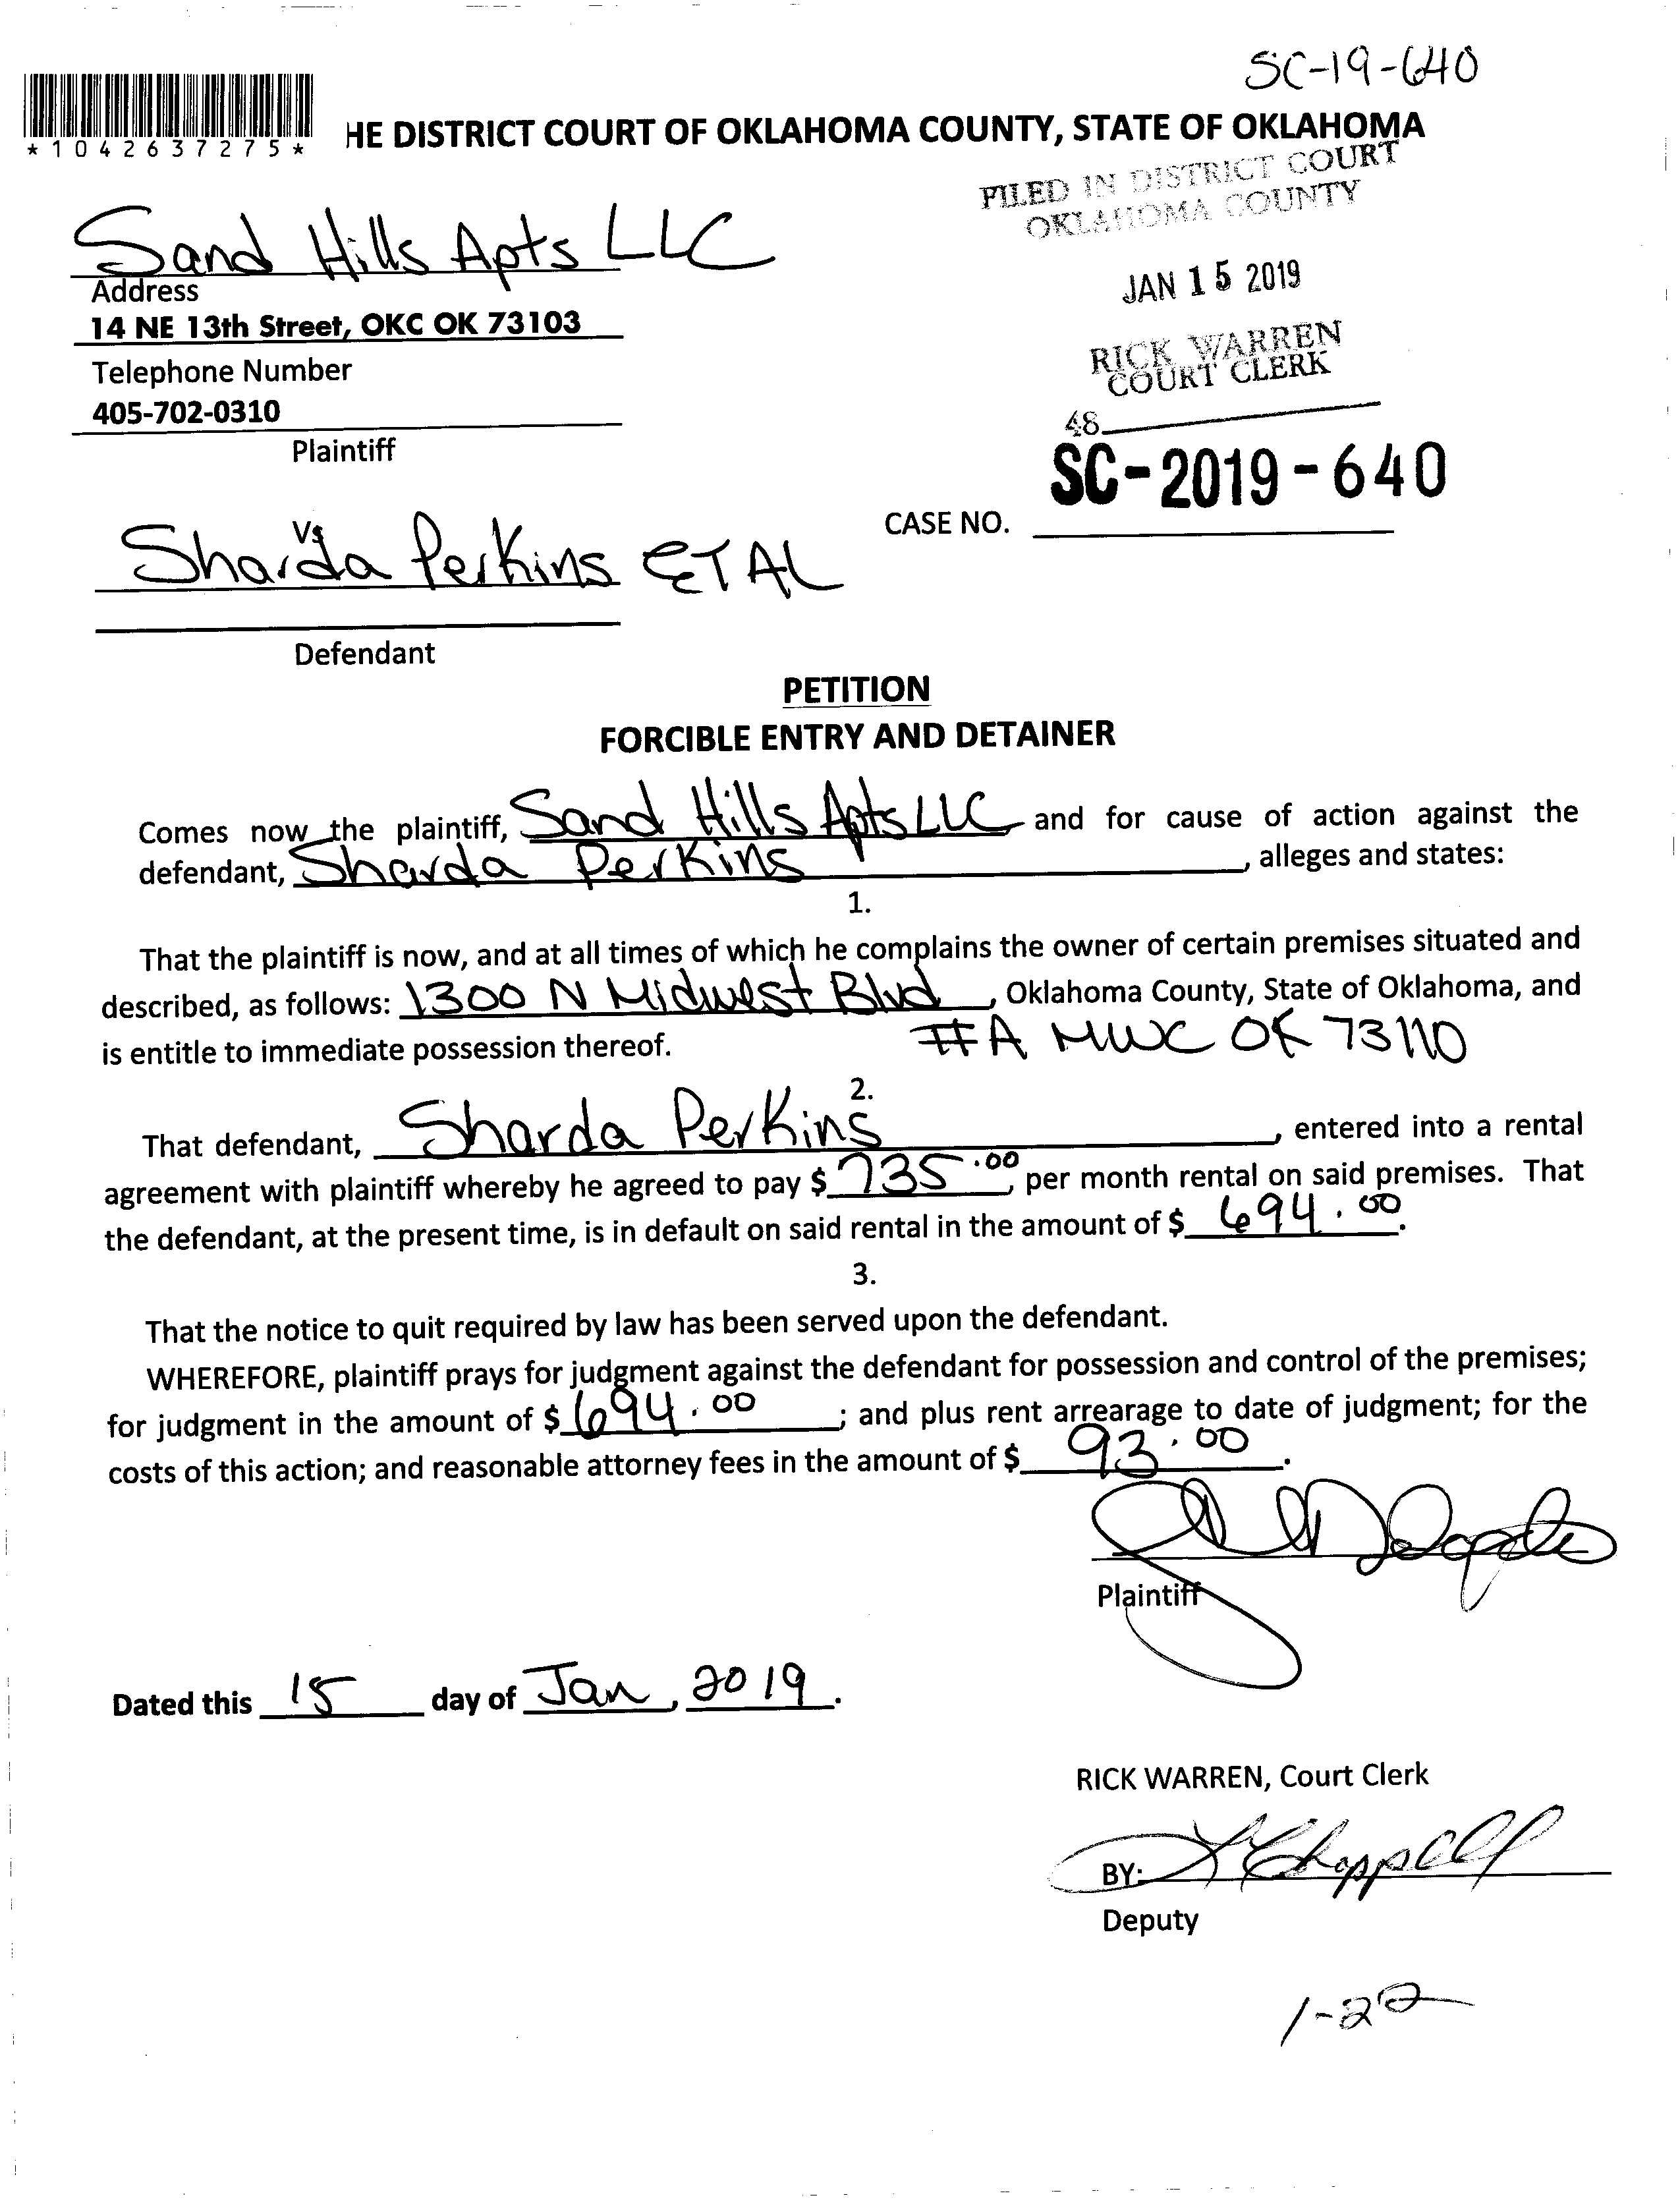 SC-19-640
*1042637275*
HE DISTRICT COURT OF OKLAHOMA COUNTY, STATE OF OKLAHOMA
FILED IN DISTRICT COURT
OKLAHOMA COUNTY
Sand Hills Apts LLC
Address
JAN 15 2019
14 NE 13th Street, OKC OK 73103
RICK WARREN
COURT CLERK
Telephone Number
405-702-0310
48
Plaintiff
SC-2019-640
CASE NO.
Vs
Sharda Perkins ETAL
Defendant
PETITION
FORCIBLE ENTRY AND DETAINER
Comes now the plaintiff, Sand Hills Apts LLC and for cause of action against the
defendant, Sharda Perkins, alleges and states:
1.
That the plaintiff is now, and at all times of which he complains the owner of certain premises situated and
described, as follows: 1300 N Midwest Blvd, Oklahoma County, State of Oklahoma, and
is entitle to immediate possession thereof. #A MWC OK 73110
2.
That defendant, Sharda Perkins, entered into a rental
agreement with plaintiff whereby he agreed to pay $ 735.00, per month rental on said premises. That
the defendant, at the present time, is in default on said rental in the amount of $ 694.00.
3.
That the notice to quit required by law has been served upon the defendant.
WHEREFORE, plaintiff prays for judgment against the defendant for possession and control of the premises;
for judgment in the amount of $ 694.00; and plus rent arrearage to date of judgment; for the
costs of this action; and reasonable attorney fees in the amount of $ 93.00.
Plaintiff
Dated this 15 day of Jan, 2019.
RICK WARREN, Court Clerk
BY: Chappell
Deputy
1-22